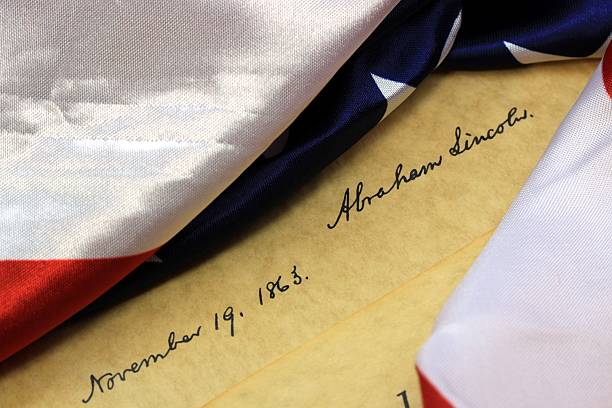 Abraham Lincoln.
November 19, 1863.